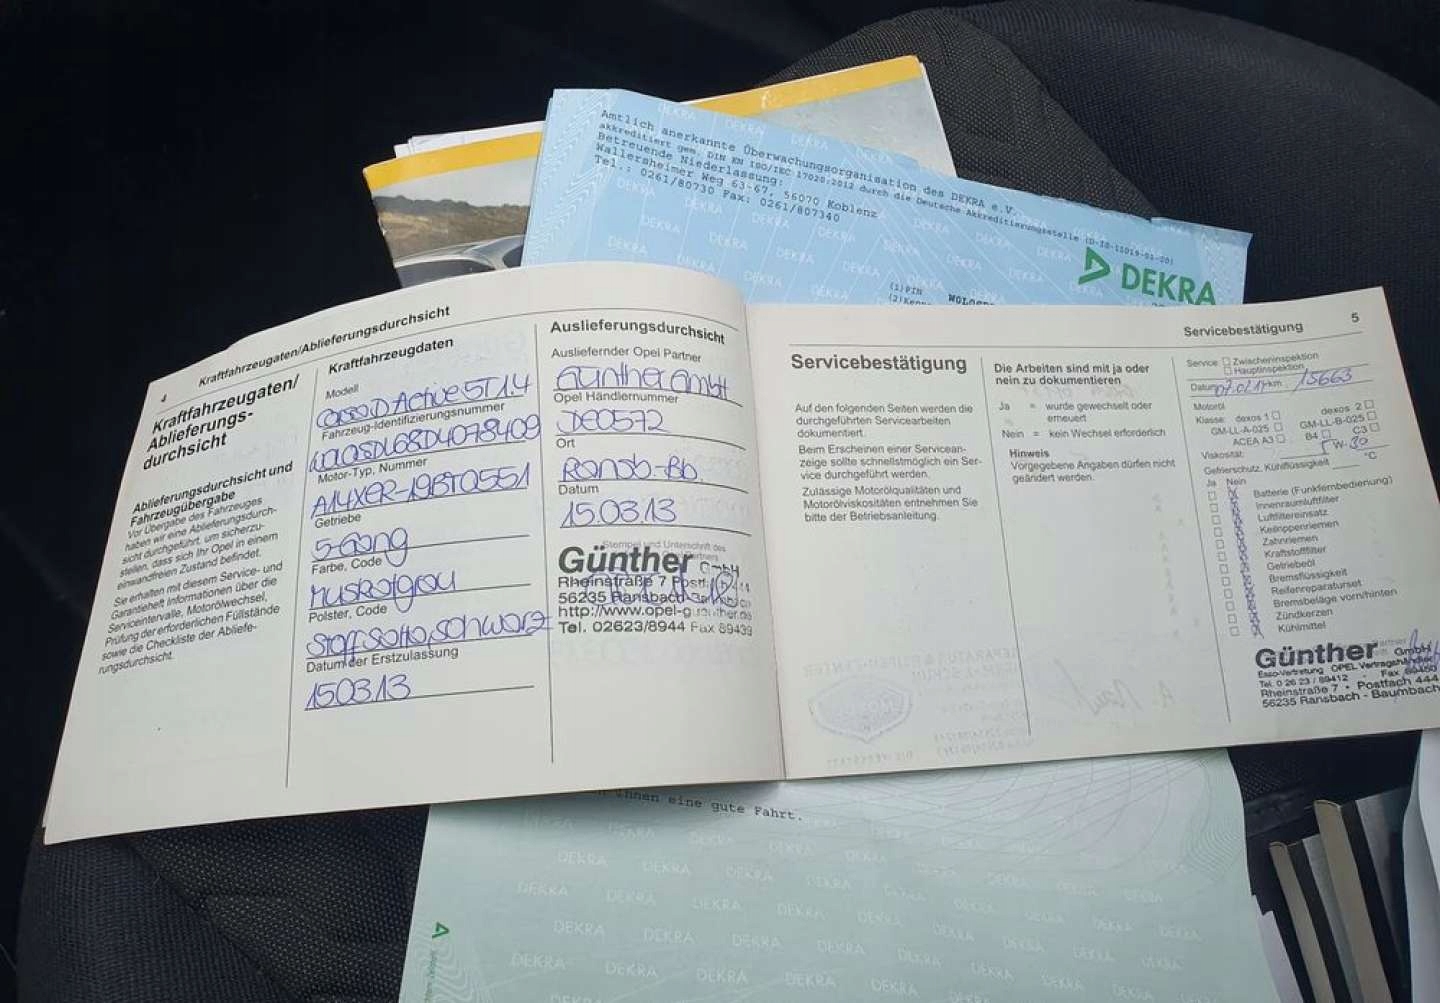 Amtlich anerkannte Überwachungsorganisation des DEKRA e.V.
akkreditiert gem. DIN EN ISO/IEC 17020:2012 durch die Deutsche Akkreditierungsstelle (D-IS-11019-01-00)
Betreuende Niederlassung:
Wallersheimer Weg 63-67, 56070 Koblenz
Tel.: 0261/80730 Fax: 0261/807340
DEKRA
(1)PIN
4
Kraftfahrzeugaten/Ablieferungsdurchsicht
Kraftfahrzeugaten/
Ablieferungs-
durchsicht
Ablieferungsdurchsicht und
Fahrzeugübergabe
Vor Übergabe des Fahrzeuges
haben wir eine Ablieferungsdurch-
sicht durchgeführt, um sicherzu-
stellen, dass sich Ihr Opel in einem
einwandfreien Zustand befindet.
Sie erhalten mit diesem Service- und
Garantieheft Informationen über die
Serviceintervalle, Motorölwechsel,
Prüfung der erforderlichen Füllstände
sowie die Checkliste der Abliefe-
rungsdurchsicht.
Kraftfahrzeugdaten
Modell
Corsa D Active 5T 1.4
Fahrzeug-Identifizierungsnummer
W0L0SDL68D4078409
Motor-Typ, Nummer
A14XER-19BT0551
Getriebe
5-Gang
Farbe, Code
Muskatgrau
Polster, Code
Stoff Salta, schwarz
Datum der Erstzulassung
15.03.13
Auslieferungsdurchsicht
Ausliefernder Opel Partner
Günther GmbH
Opel Händlernummer
DE0572
Ort
Ransb-Bb.
Datum
15.03.13
Stempel und Unterschrift des
Günther GmbH
Rheinstraße 7 Postf.
56235 Ransbach-Baumbach
http://www.opel-guenther.de
Tel. 02623/8944 Fax 89439
Servicebestätigung
5
Servicebestätigung
Auf den folgenden Seiten werden die
durchgeführten Servicearbeiten
dokumentiert.
Beim Erscheinen einer Servicean-
zeige sollte schnellstmöglich ein Ser-
vice durchgeführt werden.
Zulässige Motorölqualitäten und
Motorölviskositäten entnehmen Sie
bitte der Betriebsanleitung.
Die Arbeiten sind mit ja oder
nein zu dokumentieren
Ja = wurde gewechselt oder
erneuert
Nein = kein Wechsel erforderlich
Hinweis
Vorgegebene Angaben dürfen nicht
geändert werden.
Service Zwischeninspektion
Hauptinspektion
Datum 07.02.14 km 15663
Motoröl
Klasse: dexos 1 dexos 2
GM-LL-A-025 GM-LL-B-025
ACEA A3 B4 C3
Viskosität: 5W-30
Gefrierschutz, Kühlflüssigkeit °C
Ja Nein
Batterie (Funkfernbedienung)
Innenraumluftfilter
Luftfiltereinsatz
Keilrippenriemen
Zahnriemen
Kraftstofffilter
Getriebeöl
Bremsflüssigkeit
Reifenreparaturset
Bremsbeläge vorn/hinten
Zündkerzen
Kühlmittel
Günther GmbH
Esso-Vertretung OPEL Vertragshändler
Tel. 0 26 23 / 89412 · Fax 89450
Rheinstraße 7 · Postfach 444
56235 Ransbach - Baumbach
Ihnen eine gute Fahrt.